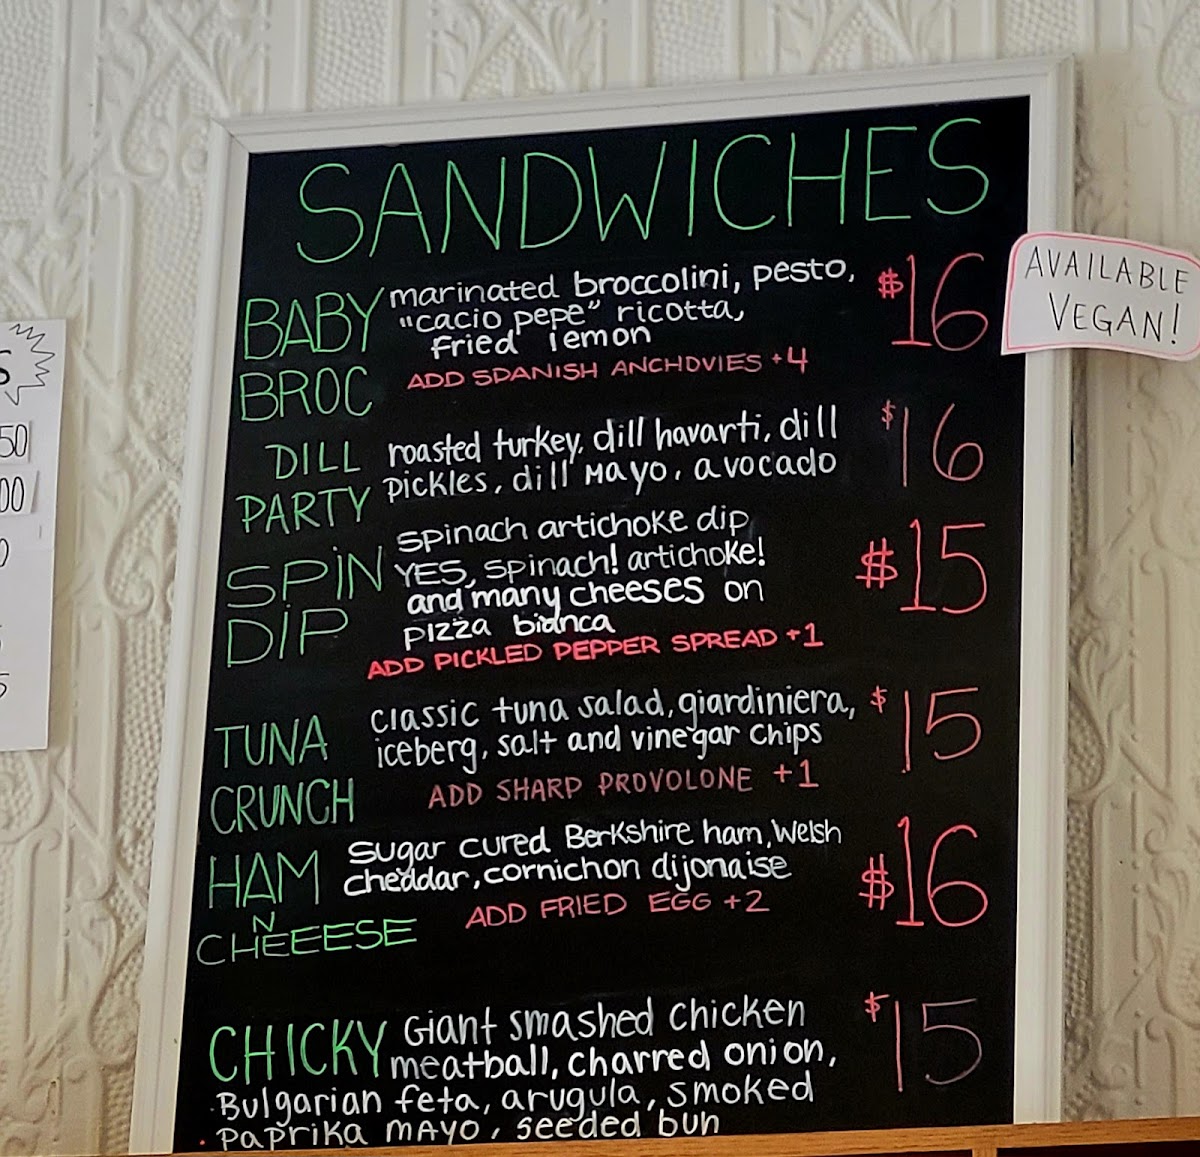 SANDWICHES
BABY BROC
marinated broccolini, pesto,
"cacio pepe" ricotta,
fried lemon
ADD SPANISH ANCHOVIES +4
$16
AVAILABLE
VEGAN!
DILL PARTY
roasted turkey, dill havarti, dill
pickles, dill mayo, avocado
$16
SPIN DIP
spinach artichoke dip
YES, spinach! artichoke!
and many cheeses on
pizza bianca
ADD PICKLED PEPPER SPREAD +1
$15
TUNA CRUNCH
classic tuna salad, giardiniera,
iceberg, salt and vinegar chips
ADD SHARP PROVOLONE +1
$15
HAM N CHEEEESE
sugar cured Berkshire ham, Welsh
cheddar, cornichon dijonaise
ADD FRIED EGG +2
$16
CHICKY
Giant smashed chicken
meatball, charred onion,
Bulgarian feta, arugula, smoked
paprika mayo, seeded bun
$15
S
50
00
0
5